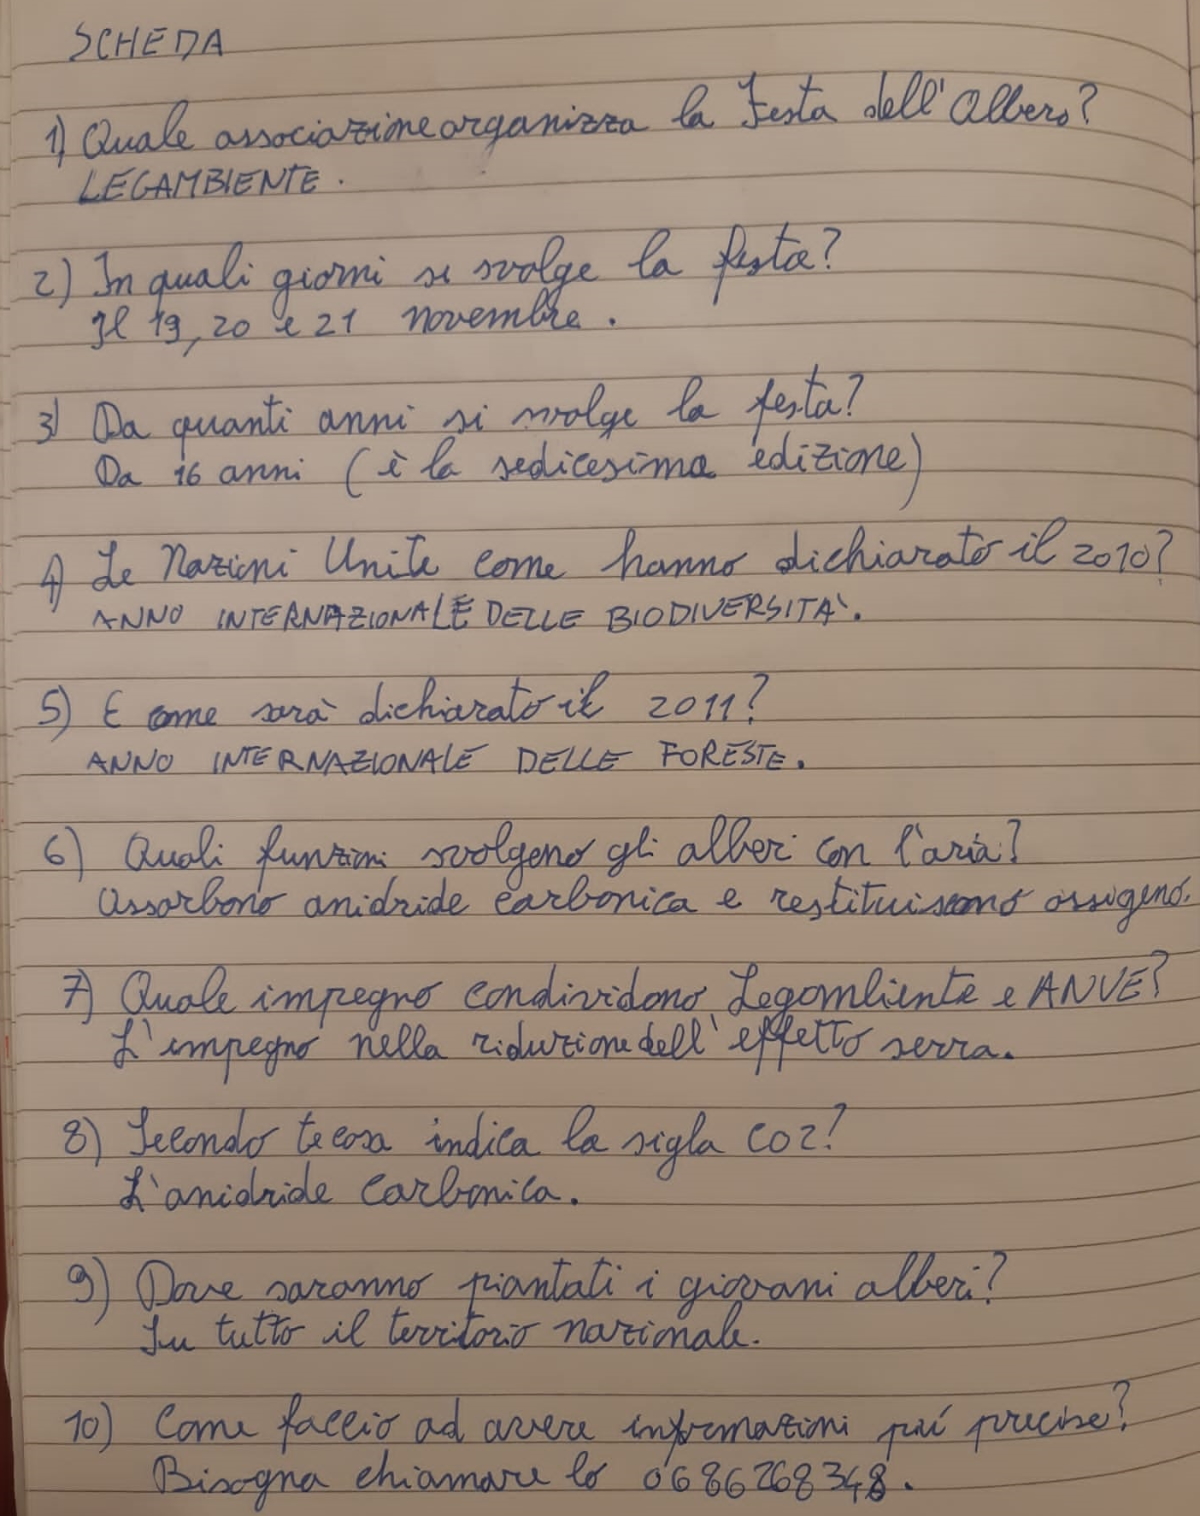 SCHEDA
1) Quale associazione organizza la Festa dell'Albero?
LEGAMBIENTE.
2) In quali giorni si svolge la festa?
Il 19, 20 e 21 novembre.
3) Da quanti anni si svolge la festa?
Da 16 anni (è la sedicesima edizione)
4) Le Nazioni Unite come hanno dichiarato il 2010?
ANNO INTERNAZIONALE DELLE BIODIVERSITÀ.
5) E come sarà dichiarato il 2011?
ANNO INTERNAZIONALE DELLE FORESTE.
6) Quali funzioni svolgono gli alberi con l'aria?
Assorbono anidride carbonica e restituiscono ossigeno.
7) Quale impegno condividono Legambiente e ANVE?
L'impegno nella riduzione dell'effetto serra.
8) Secondo te cosa indica la sigla CO2?
L'anidride carbonica.
9) Dove saranno piantati i giovani alberi?
Su tutto il territorio nazionale.
10) Come faccio ad avere informazioni piú precise?
Bisogna chiamare lo 0686268348.